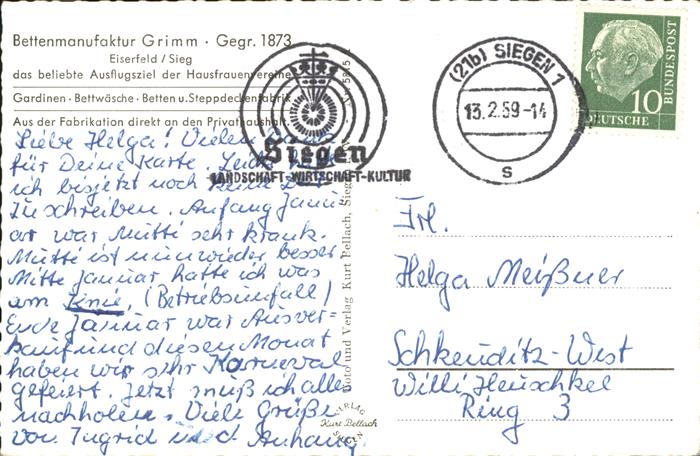 Bettenmanufaktur Grimm · Gegr. 1873
Eiserfeld / Sieg
das beliebte Ausflugsziel der Hausfrauenvereine
Gardinen · Bettwäsche · Betten u. Steppdeckenfabrik
Aus der Fabrikation direkt an den Privathaushalt
Siegen
LANDSCHAFT-WIRTSCHAFT-KULTUR
(21b) SIEGEN 1
13.2.59-14
s
DEUTSCHE BUNDESPOST
10
Liebe Helga! Vielen
für Deine Karte. Leider
ich bisjetzt noch keine
zu schreiben. Anfang Janu-
ar war Mutti sehr krank.
Mutti ist nun wieder besser
Mitte Januar hatte ich was
am Knie, (Betriebsunfall)
Ende Januar war Ausver-
kauf und diesen Monat
haben wir sehr Karneval
gefeiert. Jetzt muß ich alles
nachholen. Viele Grüße
von Ingrid und Anhang.
Foto und Verlag Kurt Bellach, Siegen
VERLAG
Kurt Bellach
SIEGEN
Frl.
Helga Meißner
Schkeuditz-West
Willi Henschkel
Ring 3